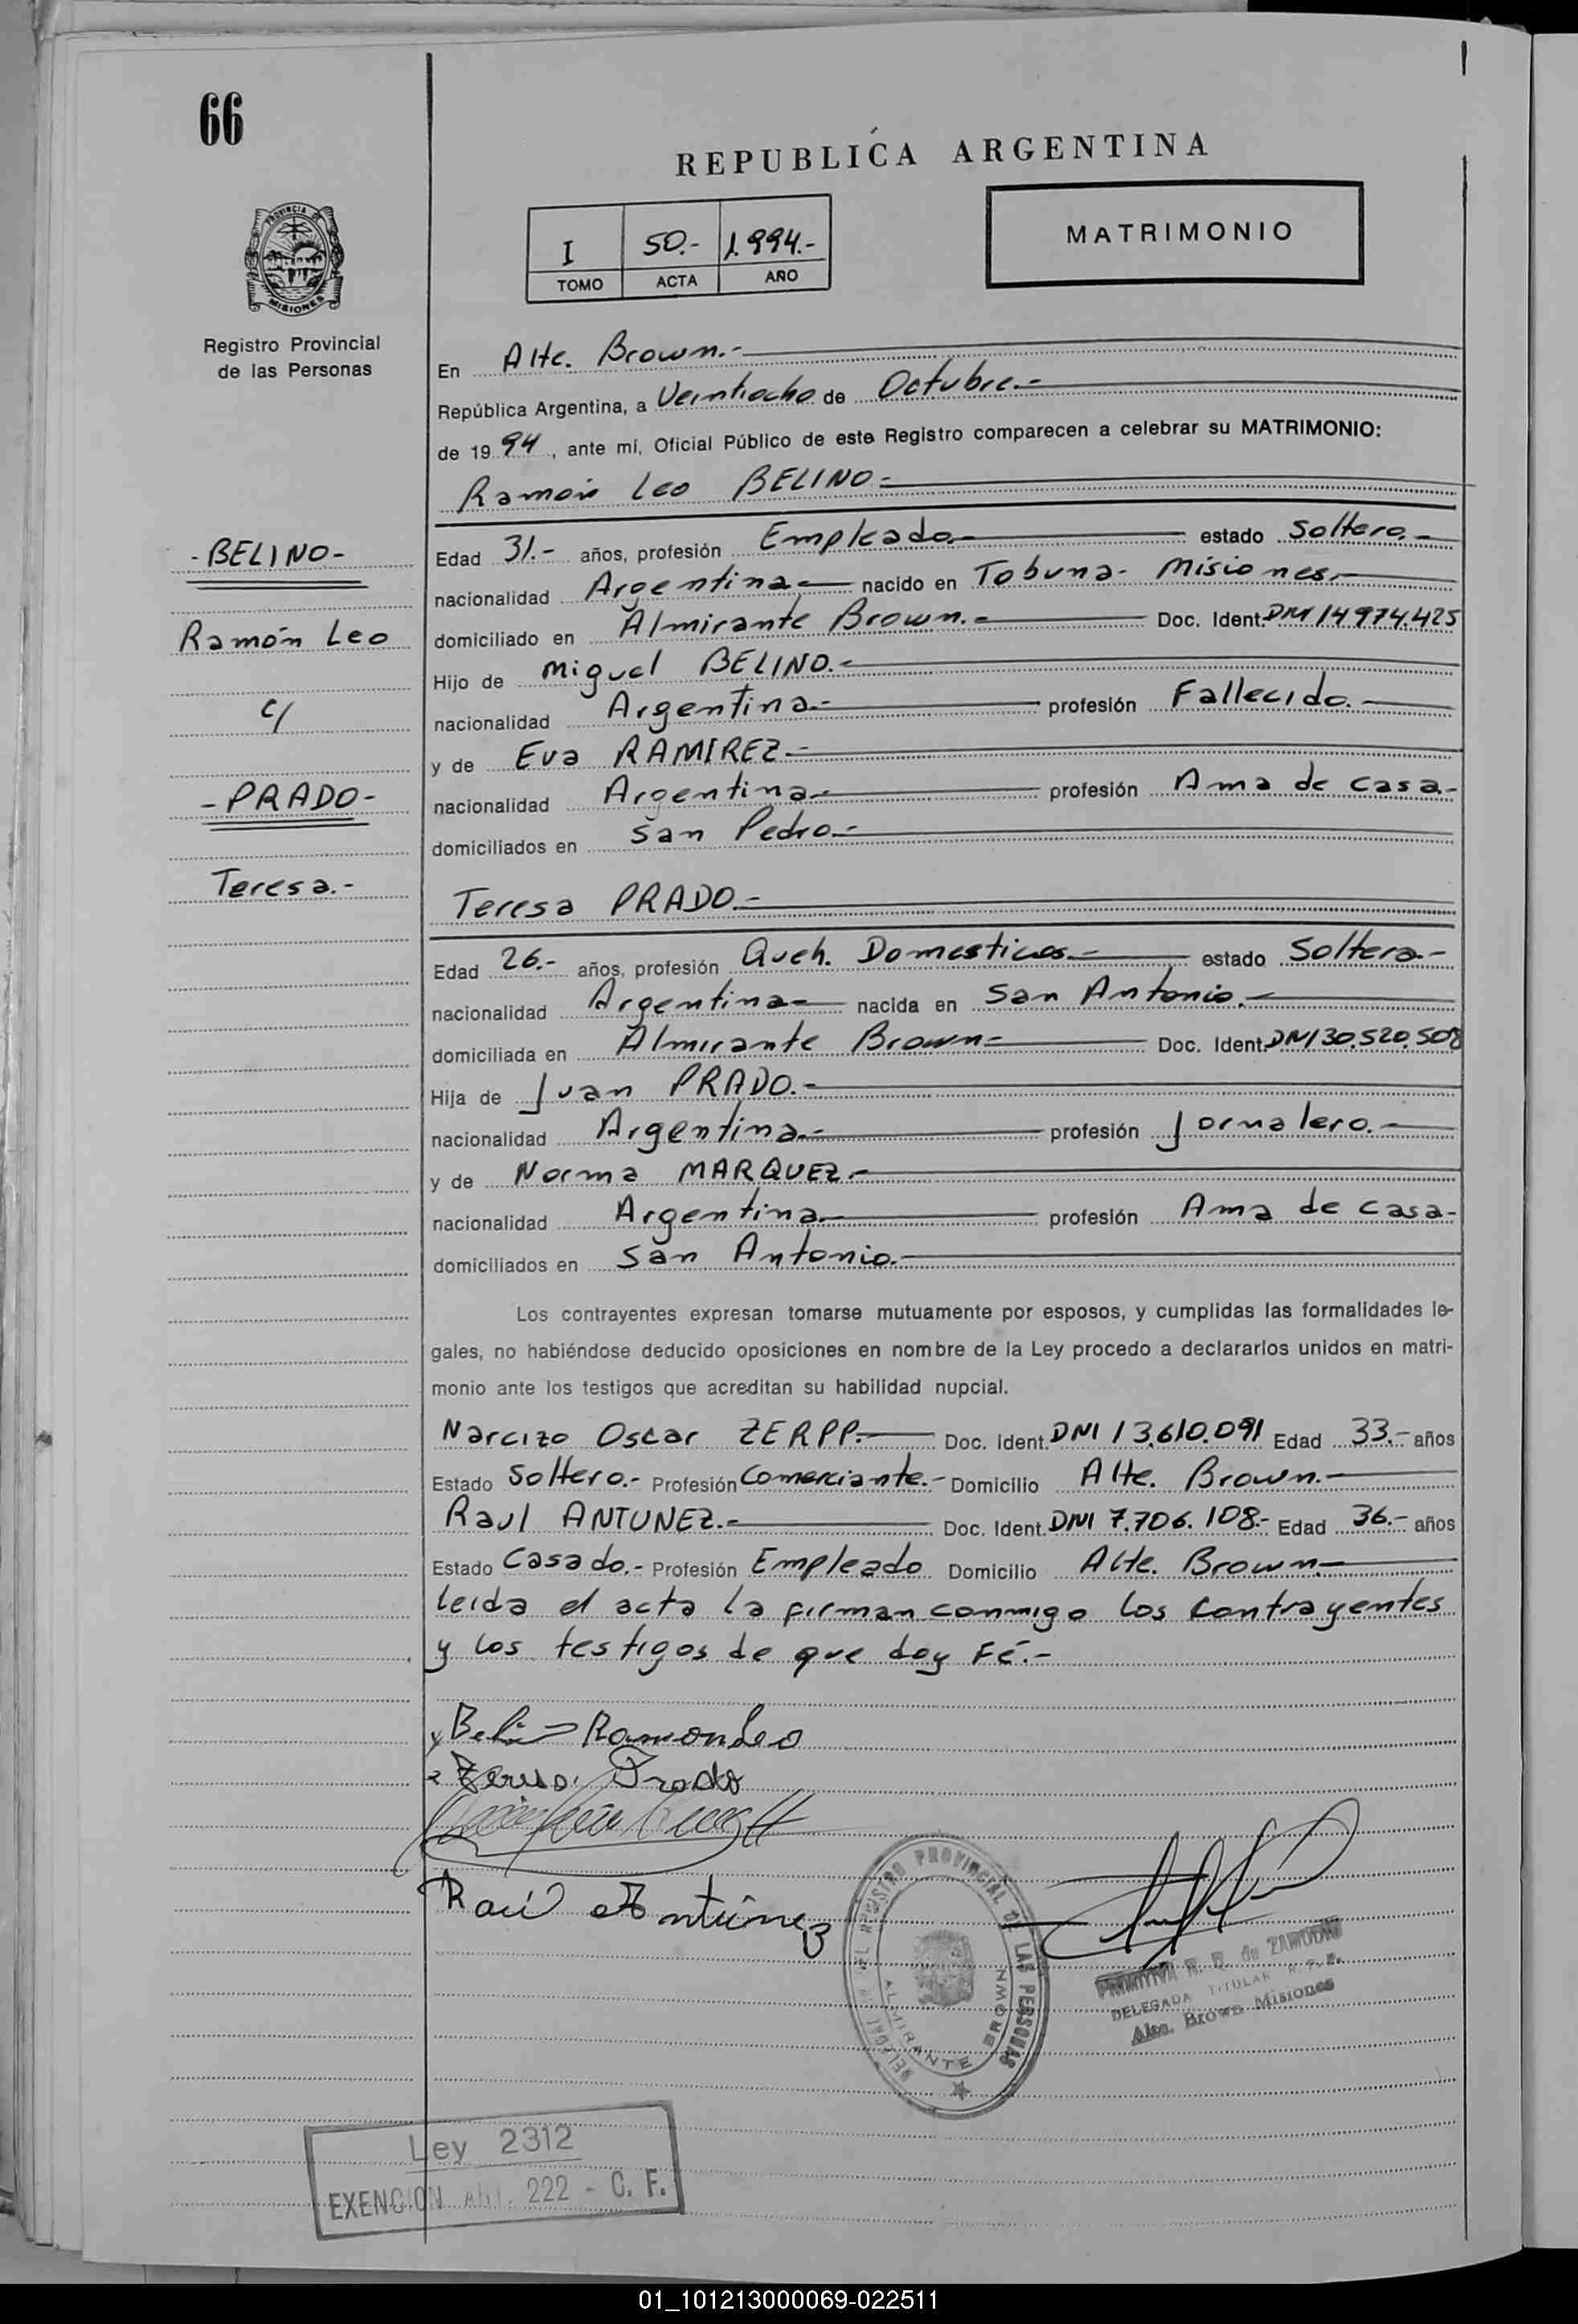 66
REPUBLICA ARGENTINA
I 50.- 1.994.-
TOMO ACTA AÑO
MATRIMONIO
PROVINCIA DE
MISIONES
Registro Provincial
de las Personas
En Alte. Brown.-
República Argentina, a Veintiocho de Octubre.-
de 1994, ante mí, Oficial Público de este Registro comparecen a celebrar su MATRIMONIO:
Ramón Leo BELINO.-
- BELINO -
Ramón Leo
c/
- PRADO -
Teresa.-
Edad 31.- años, profesión Empleado.- estado Soltero.-
nacionalidad Argentina.- nacido en Tobuna- Misiones.-
domiciliado en Almirante Brown.- Doc. Ident. DNI 14.974.425
Hijo de Miguel BELINO.-
nacionalidad Argentina.- profesión Fallecido.-
y de Eva RAMIREZ.-
nacionalidad Argentina.- profesión Ama de casa.-
domiciliados en San Pedro.-
Teresa PRADO.-
Edad 26.- años, profesión Queh. Domesticos.- estado Soltera.-
nacionalidad Argentina.- nacida en San Antonio.-
domiciliada en Almirante Brown.- Doc. Ident. DNI 30.520.508
Hija de Juan PRADO.-
nacionalidad Argentina.- profesión Jornalero.-
y de Norma MARQUEZ.-
nacionalidad Argentina.- profesión Ama de casa-
domiciliados en San Antonio.-
Los contrayentes expresan tomarse mutuamente por esposos, y cumplidas las formalidades le-
gales, no habiéndose deducido oposiciones en nombre de la Ley procedo a declararlos unidos en matri-
monio ante los testigos que acreditan su habilidad nupcial.
Narcizo Oscar ZERPP.- Doc. Ident. DNI 13.610.091 Edad 33.- años
Estado Soltero.- Profesión Comerciante.- Domicilio Alte. Brown.-
Raul ANTUNEZ.- Doc. Ident. DNI 7.706.108.- Edad 36.- años
Estado Casado.- Profesión Empleado Domicilio Alte. Brown.-
leida el acta la firman conmigo los contrayentes
y los testigos de que doy Fé.-
Ramon Leo
Prado
Raúl Antúnez
REGISTRO PROVINCIAL DE LAS PERSONAS
ALMIRANTE BROWN
de ZAMUDIO
DELEGADA TITULAR R.P.P.
Alte. Brown Misiones
Ley 2312
EXENCION Art. 222 - C. F.
01_101213000069-022511